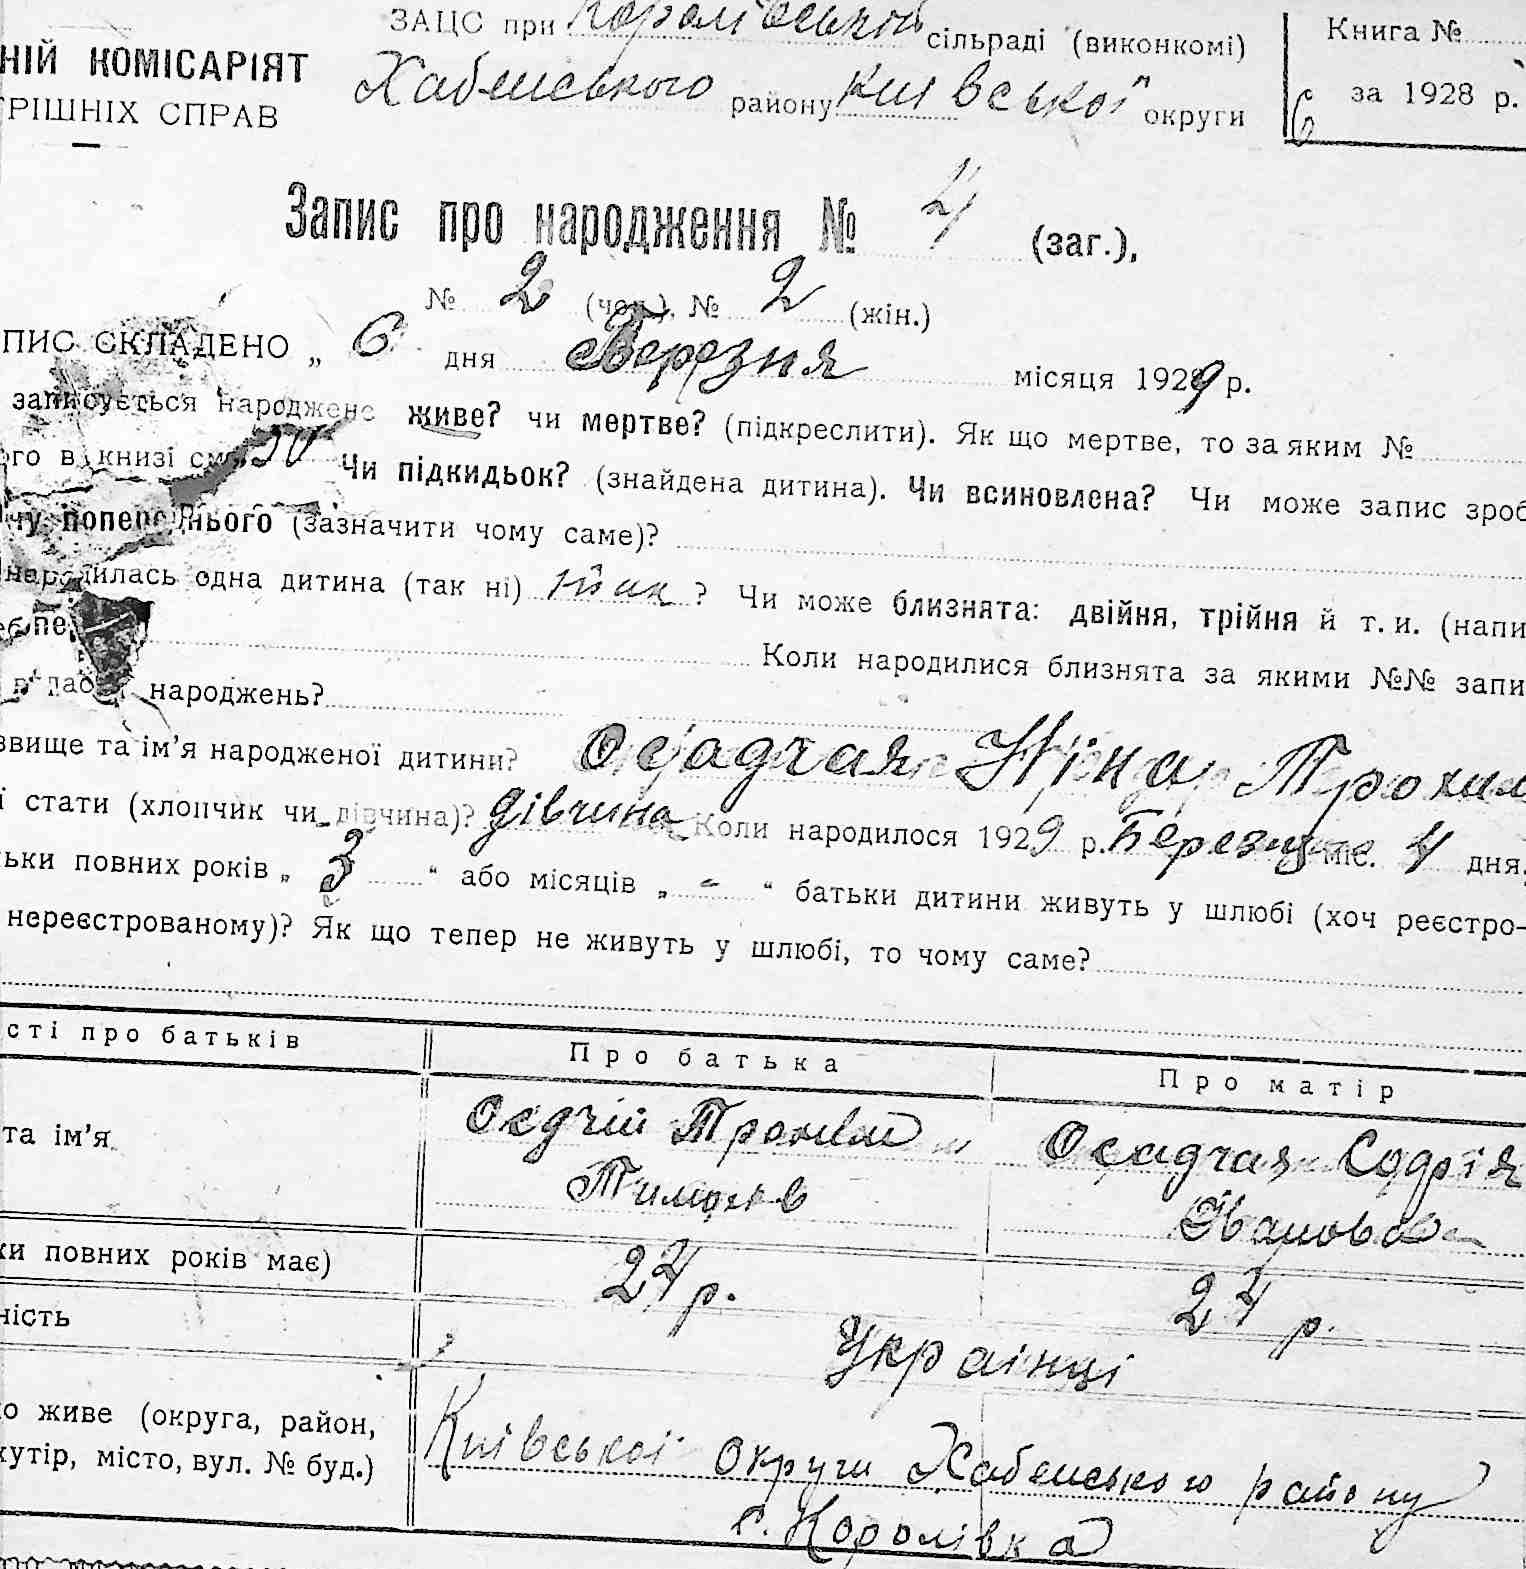 ЗАЦС при Королівській сільраді (виконкомі)
Книга №
НІЙ КОМІСАРІЯТ
Хабенського району Київської округи
за 1928 р.
6
ТРІШНІХ СПРАВ
Запис про народження № 4 (заг.),
№ 2 (чол.), № 2 (жін.)
ПИС СКЛАДЕНО „ 6 дня Березня місяця 1929 р.
записується народжене живе? чи мертве? (підкреслити). Як що мертве, то за яким №
ого в книзі Чи підкидьок? (знайдена дитина). Чи всиновлена? Чи може запис зроб
попереднього (зазначити чому саме)?
народилась одна дитина (так ні) так ? Чи може близнята: двійня, трійня й т. и. (напи
Коли народилися близнята за якими №№ запи
народжень?
звище та ім’я народженої дитини? Осадчая Ніна Трохим
ї стати (хлопчик чи дівчина)? дівчина Коли народилося 1929 р. Березня міс. 4 дня.
льки повних років „ 3 “ або місяців „ - “ батьки дитини живуть у шлюбі (хоч реєстро-
нереєстрованому)? Як що тепер не живуть у шлюбі, то чому саме?
сті про батьків
Про батька
Про матір
та ім’я
Осдчій Трохим
Осадчая Содфія
Тимошів
Івановна
ки повних років має)
24 р.
24 р.
ність
Українці
о живе (округа, район,
хутір, місто, вул. № буд.)
Київської округи Хабенського району
с. Королівка